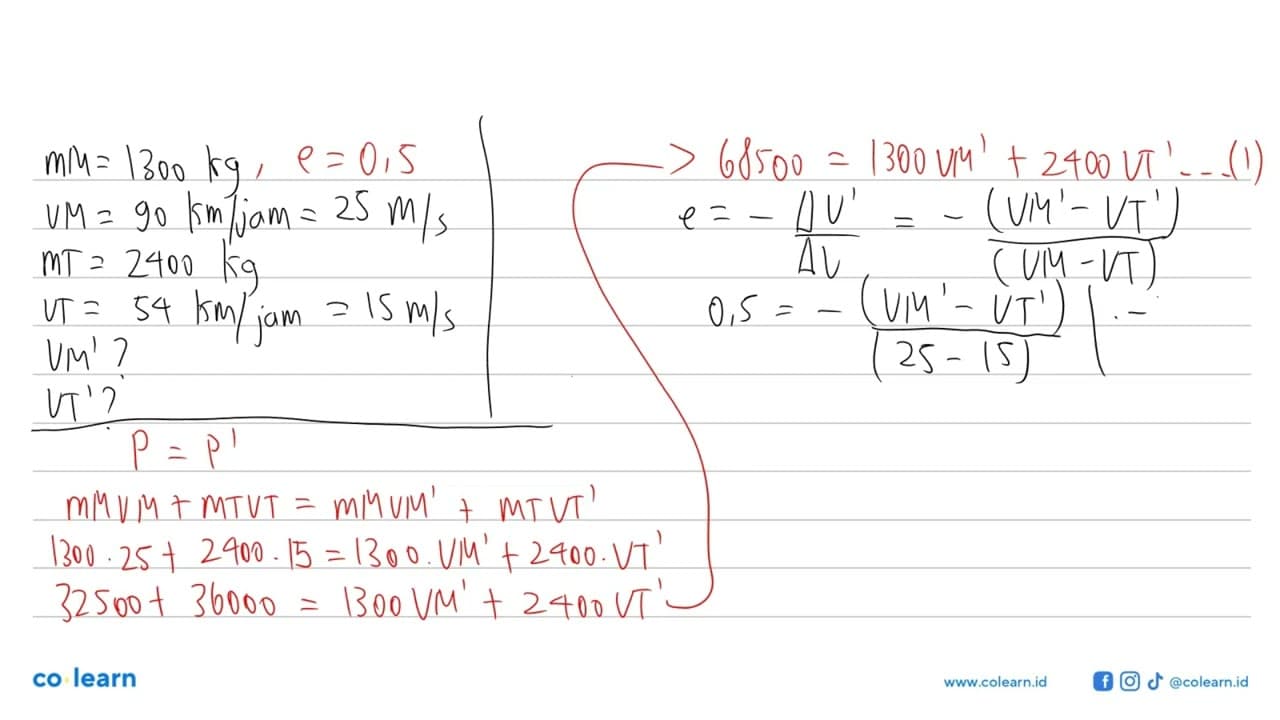 mM = 1300 kg, e = 0,5
VM = 90 km/jam = 25 m/s
mT = 2400 kg
VT = 54 km/jam = 15 m/s
VM' ?
VT' ?
P = P'
mM VM + mT VT = mM VM' + mT VT'
1300 . 25 + 2400 . 15 = 1300 . VM' + 2400 . VT'
32500 + 36000 = 1300 VM' + 2400 VT'
> 68500 = 1300 VM' + 2400 VT' ... (1)
e = - ΔV' / ΔV = - (VM' - VT') / (VM - VT)
0,5 = - (VM' - VT') / (25 - 15)
co learn
www.colearn.id
@colearn.id